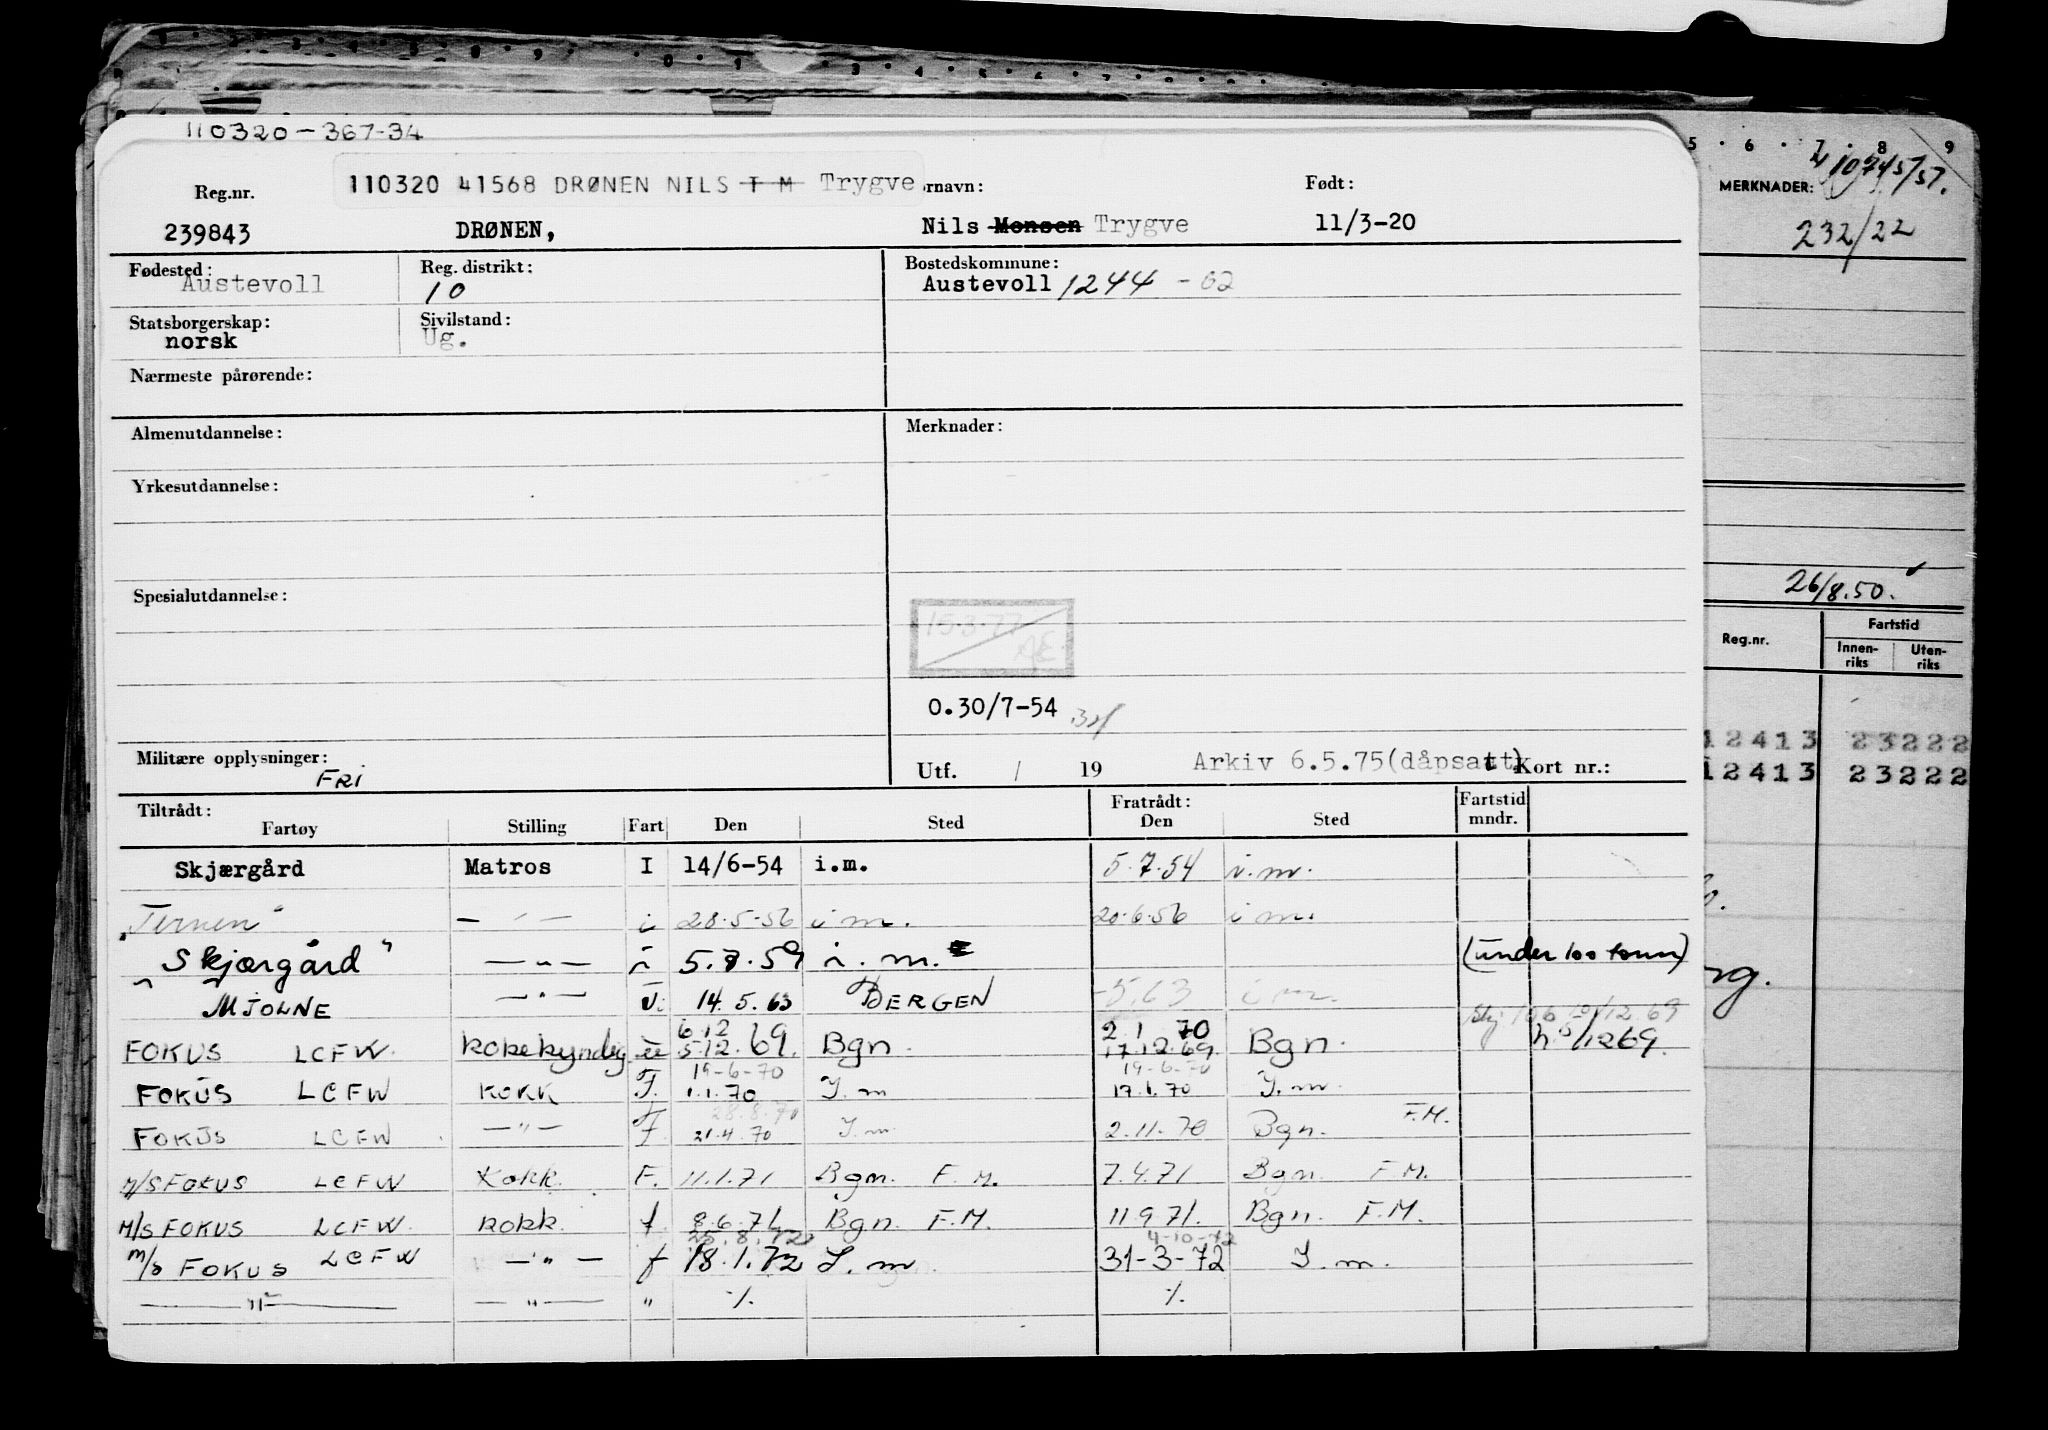 110320-367-34
Reg.nr. 110320 41568 DRØNEN NILS T M Trygve ornavn: Født:
239843 DRØNEN, Nils Monsen Trygve 11/3-20
Fødested: Reg. distrikt: Bostedskommune:
Austevoll 10 Austevoll 1244 - 02
Statsborgerskap: Sivilstand:
norsk Ug.
Nærmeste pårørende:
Almenutdannelse: Merknader:
Yrkesutdannelse:
Spesialutdannelse:
15.3.77
AE
0.30/7-54
Militære opplysninger: Utf. / 19 Arkiv 6.5.75(dåpsatt) Kort nr.:
FRI
Tiltrådt: Fratrådt: Fartstid
Fartøy Stilling Fart Den Sted Den Sted mndr.
Skjærgård Matros I 14/6-54 i.m. 5.7.54 i.m.
"Ternen" — " — i 28.5-56 i m. 20.6.56 i m.
"Skjærgård" — " — i 5.8.59 i.m. (under 100 tonn)
MJOLNE — " — U. 14.5.63 BERGEN -5.63 i m.
6.12 2.1 70
FOKUS LCFW. kokekyndig 5.12.69. Bgn. 17.12.69. Bgn. /1269.
19-6-70 19-6-70
FOKUS LCFW KOKK F. 1.1.70 I.m 17.1.70 I.m.
28.8.70
FOKUS LCFW — " — F. 21.4.70 I.m. 2.11.70 Bgn. F.M.
M/S FOKUS LCFW Kokk. F. 11.1.71 Bgn. F.M. 7.4.71 Bgn. F.M.
M/S FOKUS LCFW. kokk. f. 8.6.71 Bgn. F.M. 11.9.71. Bgn. F.M.
25.8.72 4-10-72
m/s FOKUS LCFW — " — f 18.1.72 I.m 31-3-72 I.m.
— " — — " — " ·/. ·/.
5 · 6 · 7 · 8 9
MERKNADER: 10745/57.
232/22
26/8.50.
Reg.nr. Fartstid
Innen-riks Uten-riks
12413 23222
12413 23222